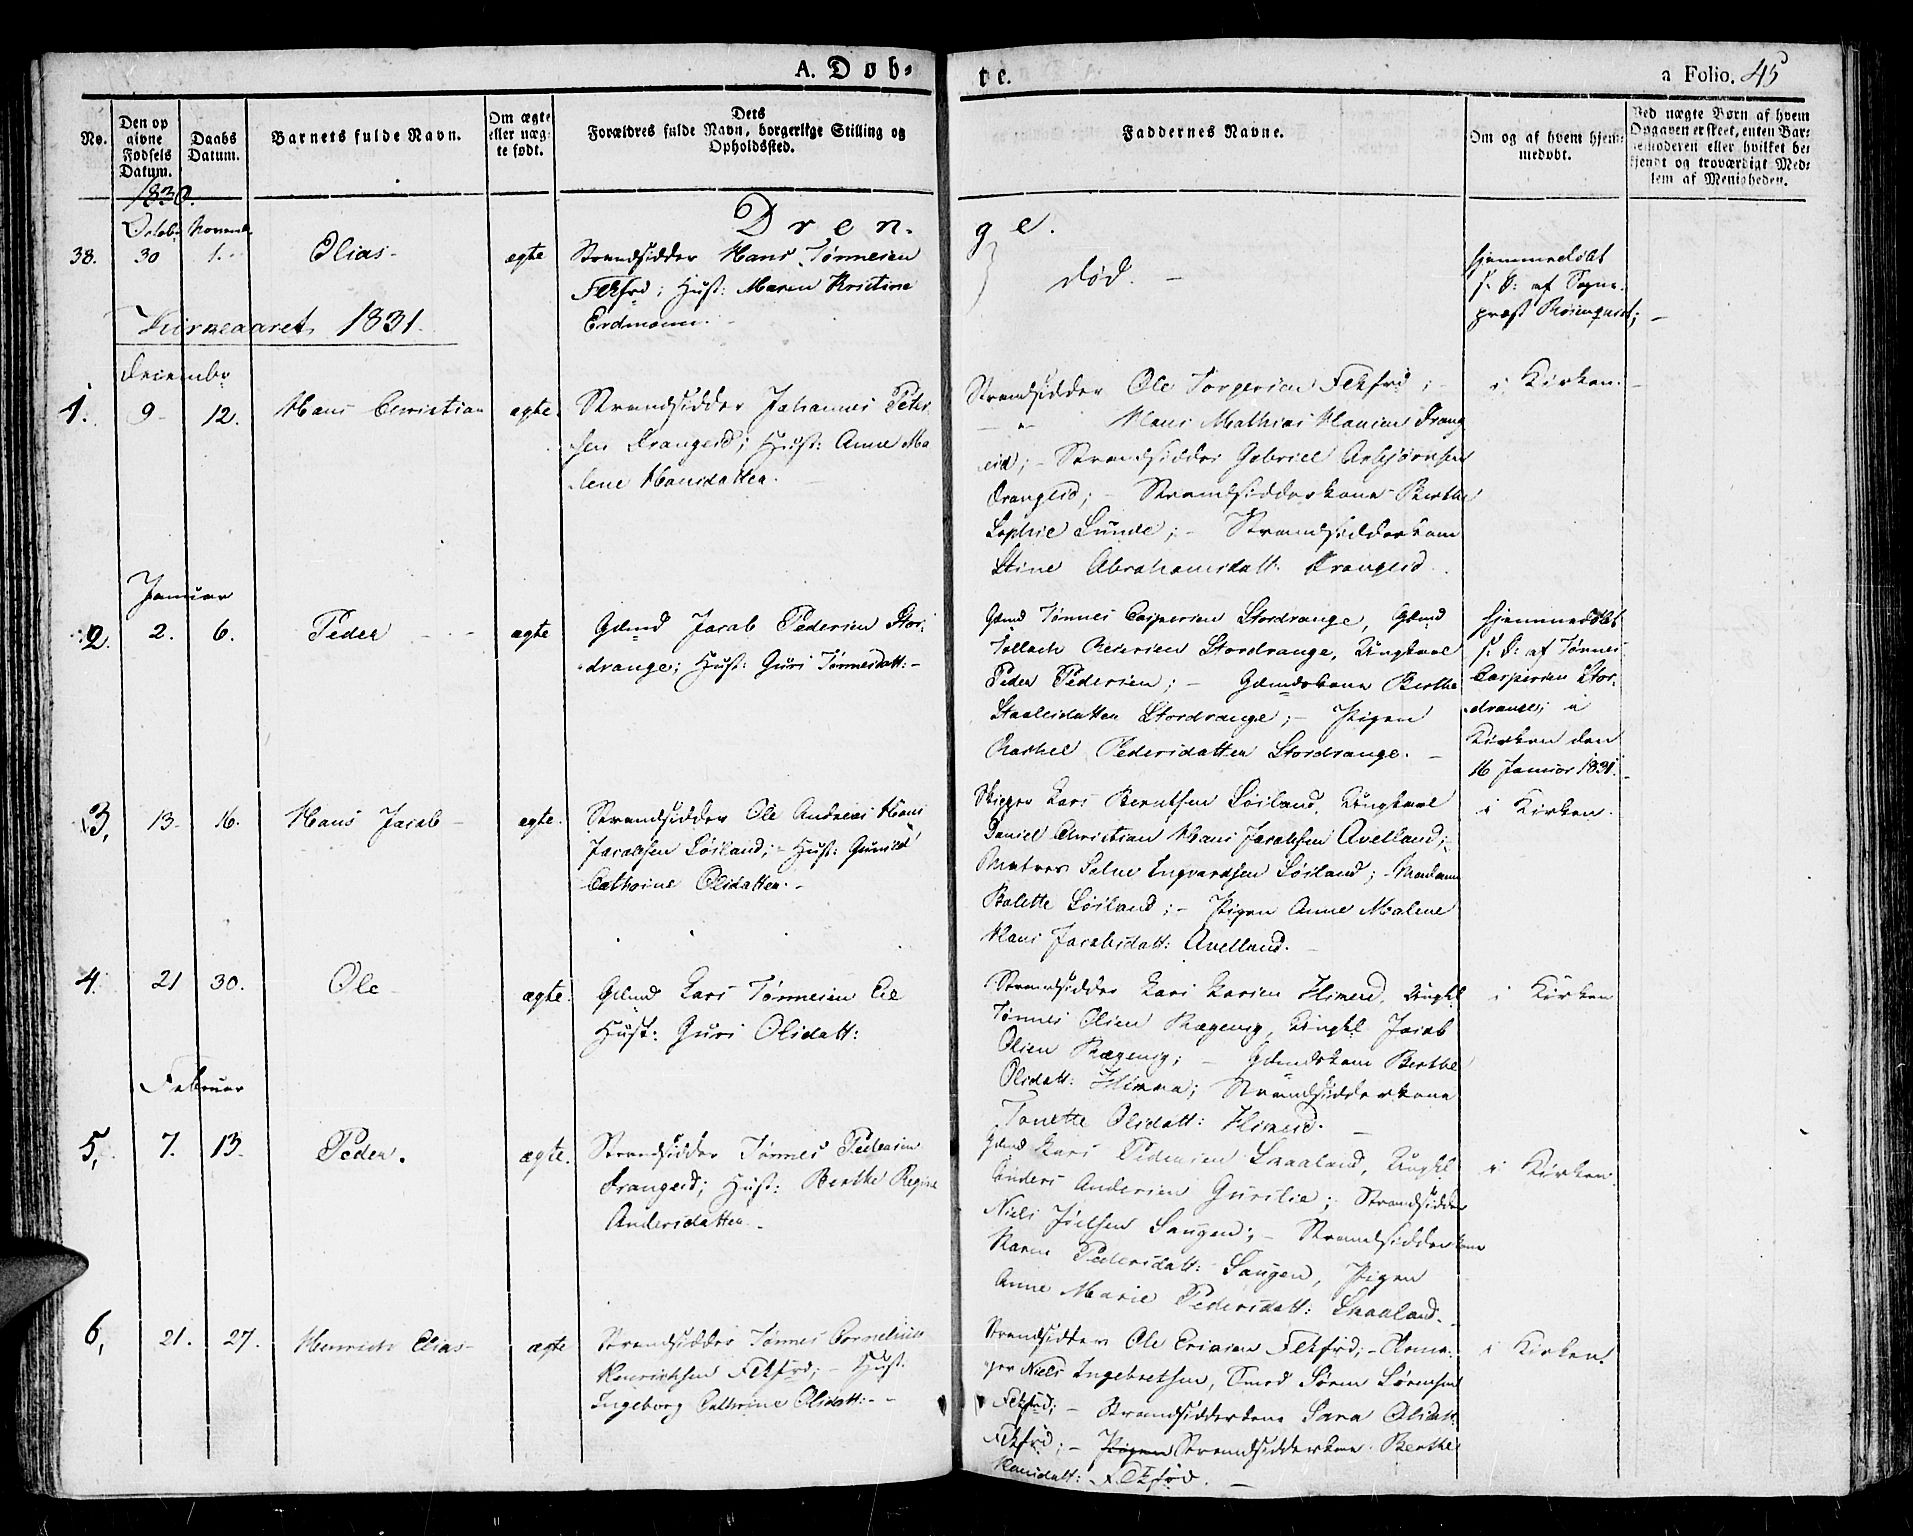 A. Døb-
te.
a Folio. 45
No.
Den op
givne
Fødsels
Datum.
Daabs
Datum.
Barnets fulde Navn.
Om ægte
eller uæg-
te født.
Dets
Forældres fulde Navn, borgerlige Stilling og
Opholdssted.
Faddernes Navne.
Om og af hvem hjem-
medøbt.
Ved uægte Børn af hvem
Opgaven er skeet, enten Bar-
nemoderen eller hvilket be-
kjendt og troværdigt Med-
lem af Menigheden.
1830.
Dren-
ge.
38.
Octob:
30
Novemb:
1.
Olias
ægte
Strandsidder Hans Tønnesen
Flkfrd; Hust: Maren Kristine
Erdmann.
død.
hjemmedøbt
s. D: af Sogne-
præst Rosenqvist;
Kirkeaaret 1831.
December
1.
9
12.
Hans Christian
ægte
Strandsidder Johannes Peter-
sen Drangeid; Hust: Anne Ma-
lene Hansdatter.
Strandsidder Ole Torgersen Flkfrd;
Hans Mathias Hansen Drang-
eid; Strandsidder Gabriel Asbjørnsen
Drangeid; Strandsidderkone Berthe
Sophie Lunde; Strandsidderkone
Stine Abrahamsdatt: Drangeid.
i Kirken.
Januar
2.
2.
6.
Peder
ægte
Gdmd Jacob Pedersen Stor-
drange; Hust: Guri Tønnesdatt:
Gdmd Tønnes Caspersen Stordrange, Gdmd
Tollach Reiersen Stordrange, Ungkarl
Peder Pedersen; Gdmdskone Berthe
Staalesdatter Stordrange; Pigen
Rachel Pedersdatter Stordrange.
hjemmedøbt
s. D: af Tønnes
Caspersen Stor-
drange; i
Kirken den
16 Januar 1831.
3,
13
16.
Hans Jacob
ægte.
Strandsidder Ole Andreas Hans
Jacobsen Løiland; Hust: Gunild
Cathrine Olsdatter.
Skipper Lars Berntsen Løiland, Ungkarl
Daniel Christian Hans Jacobsen Avelland;
Matros Salve Ingvardsen Løiland; Madam
Bolette Løiland; Pigen Anne Malene
Hans Jacobsdatt: Avelland.
i Kirken.
4.
21
30.
Ole
ægte.
Gdmd Lars Tønnesen Eie
Hust: Guri Olsdatt:
Strandsidder Lars Larsen Hineid, Ungkl
Tønnes Olsen Rægevig, Ungkl Jacob
Olsen Rægevig; Gdmdskone Berthe
Olsdatt: Strandsidderkone
Tonette Olsdatt: Hineid.
i Kirken
Februar
5,
7.
13.
Peder.
ægte.
Strandsidder Tønnes Pedersen
Drangeid; Hust: Berthe Regine
Andersdatter.
Gdmd Lars Pedersen Skaaland, Ungkl
Anders Andersen Guselie; Strandsidder
Niels Joelsen Haugen; Strandsidderkone
Karen Pedersdatt: Haugen, Pigen
Anne Marie Pedersdatt: Skaaland.
i Kirken.
6,
21.
27.
Henrich Elias
ægte
Strandsidder Tønnes Cornelius
Henrichsen Flkfrd; Hust:
Ingeborg Cathrine Olsdatt:
Strandsidder Ole Ericsen Flkfrd;
Niels Ingebretsen, Smed Søren Sørensen
Flkfrd; Strandsidderkone Sara Olsdatt:
Flkfrd; Pigen Strandsidderkone Berthe
Hansdatt: Flkfrd.
i Kirken.